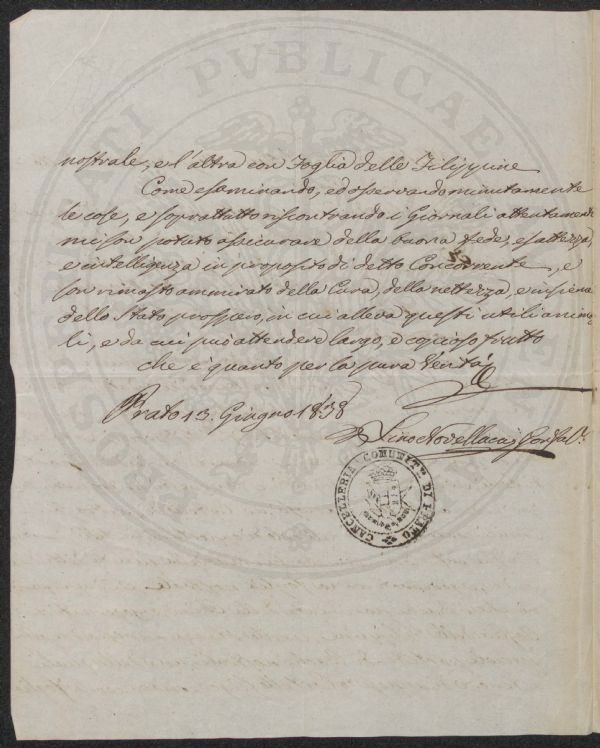 nostrale, e l'altra con Foglia delle Filippine
Come esaminando, ed osservando minutamente
le cose, e soprattutto riscontrando i Giornali attentamente
mi son potuto assicurare della buona fede, esattezza,
e intelligenza in proposito di detto Concorrente, e
son rimasto ammirato della Cura, della nettezza, e insieme
dello Stato prospero, in cui alleva questi utili anima
li, e da cui può attendere largo, e copioso frutto
che è quanto per la pura Verità
Prato 13. Giugno 1838
CANCELLERIA COMUNIT.VA DI PRATO